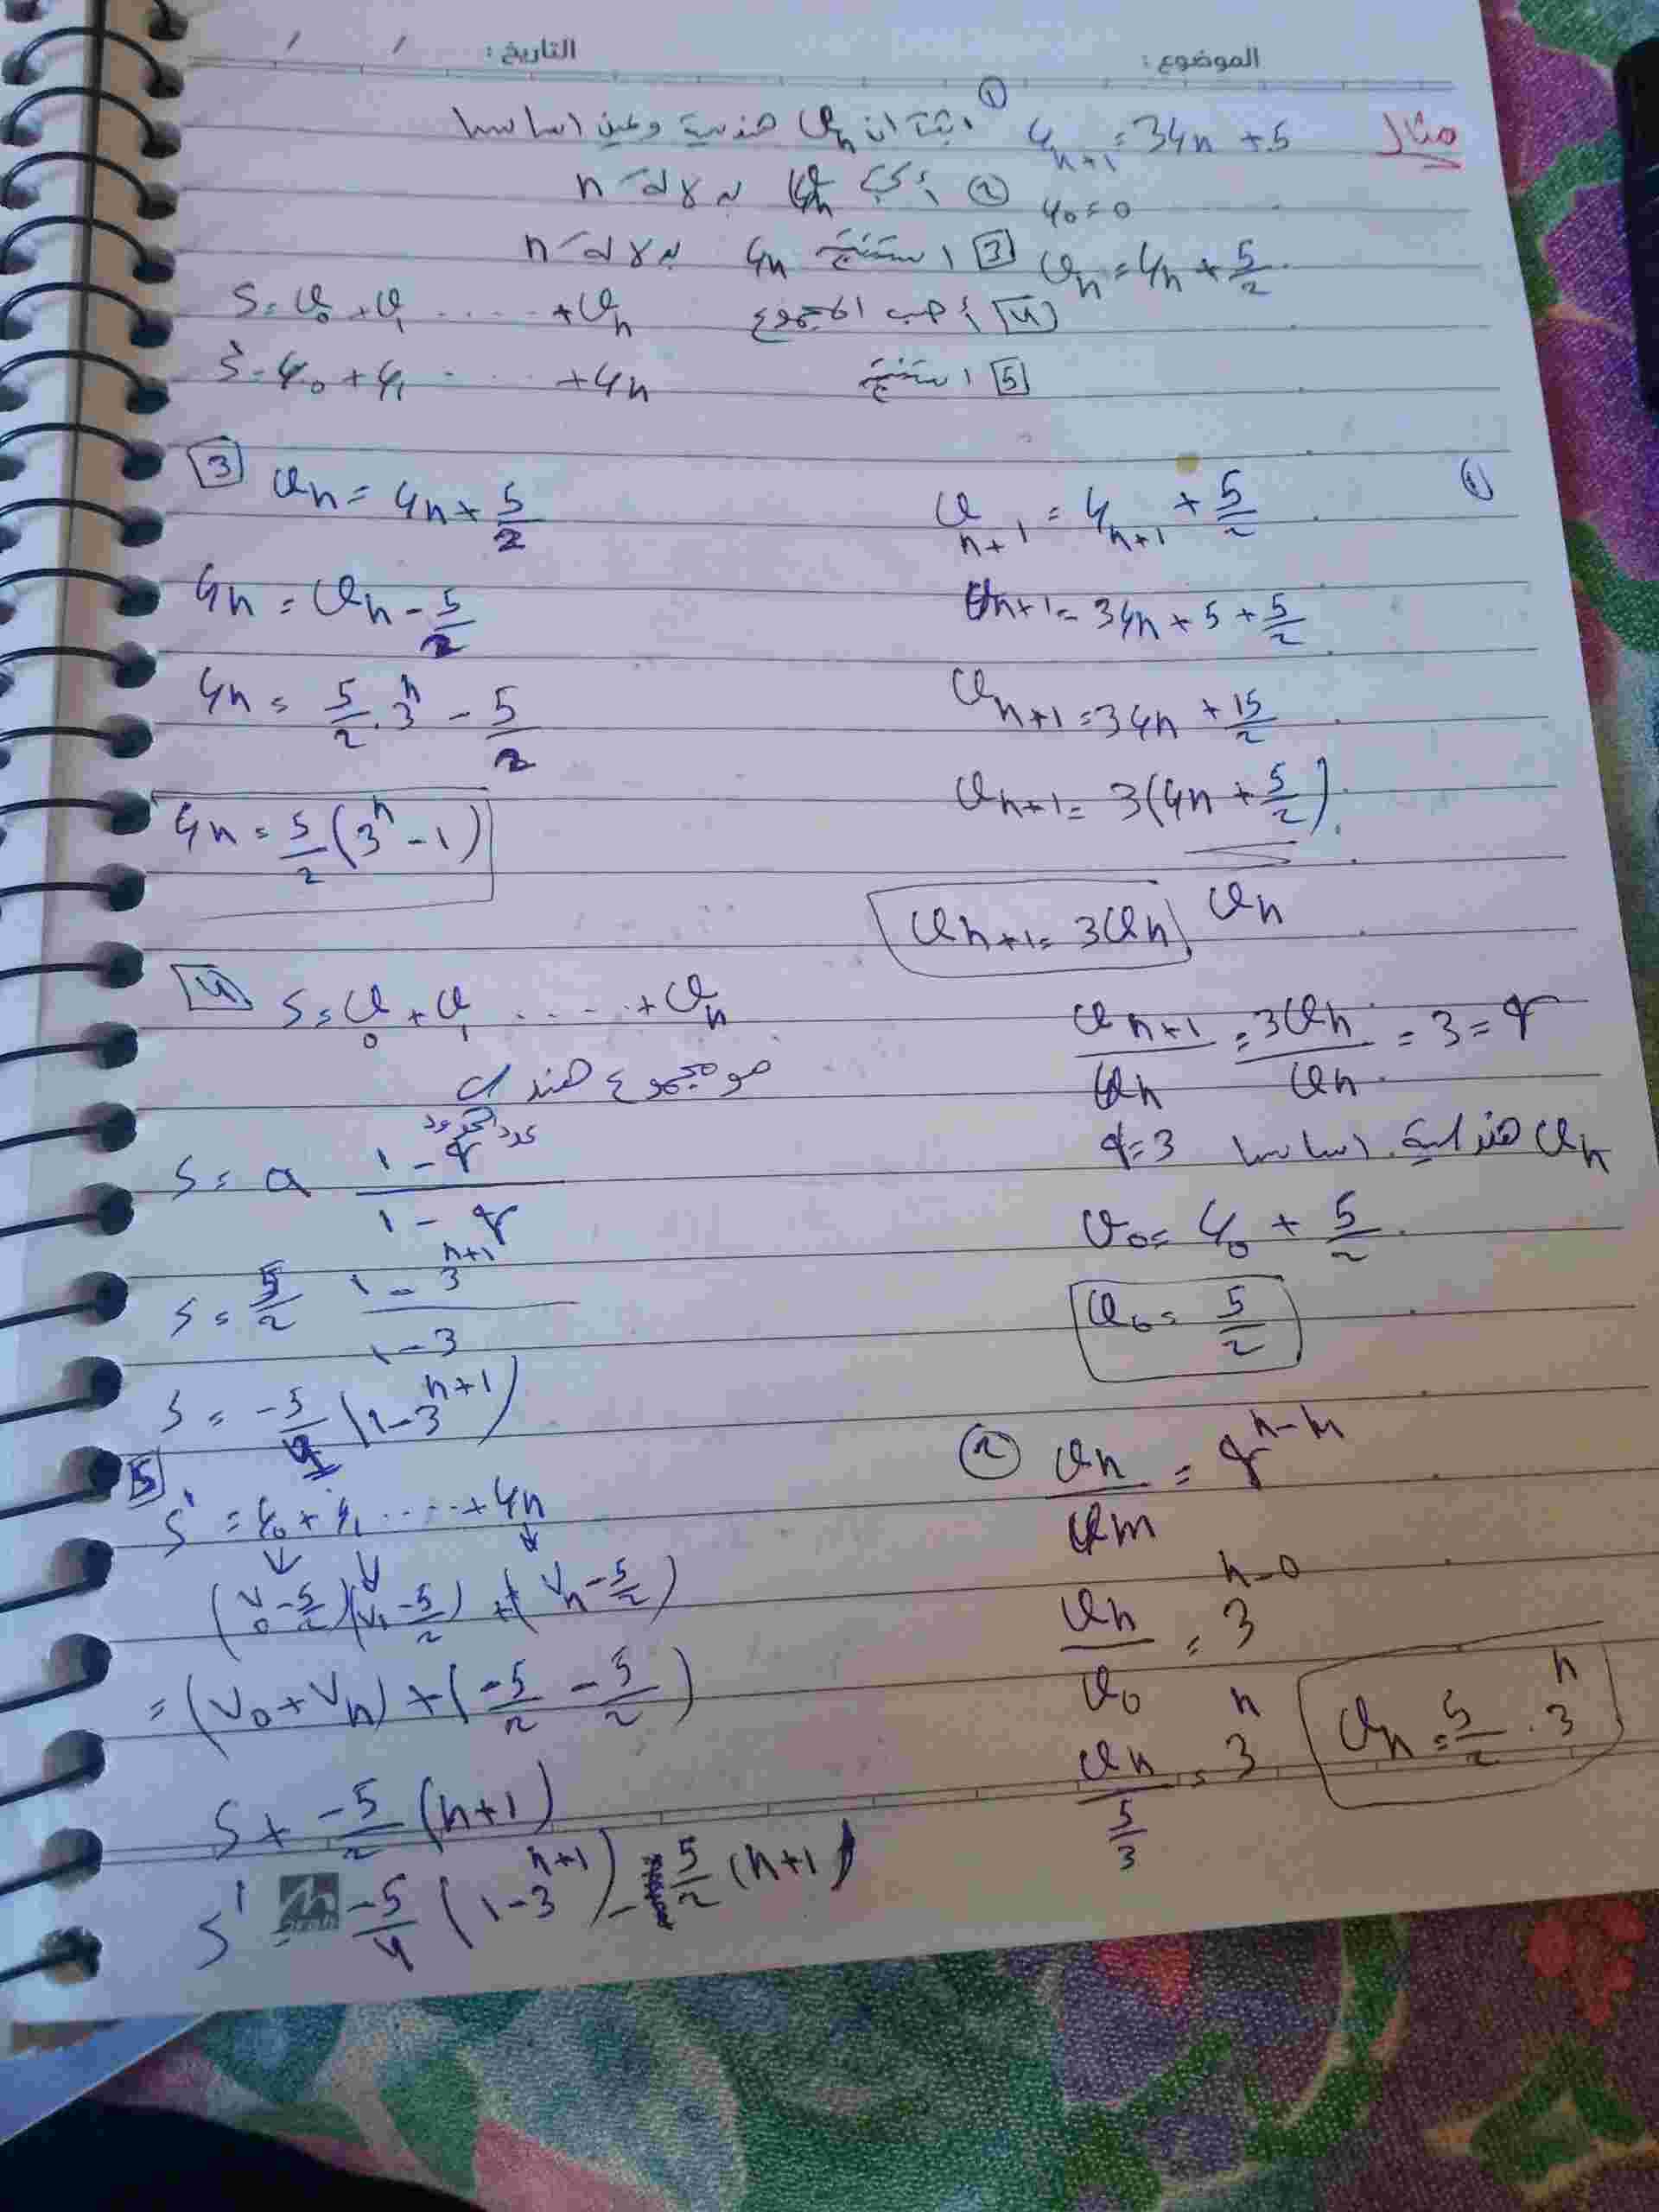 الموضوع : التاريخ : / /
مثال u_{n+1} = 3u_n + 5 ① اثبت ان v_n هندسية وعين اساسها
u_0 = 0 ② أكتب v_n بدلالة n
v_n = u_n + 5/2 [3] استنتج u_n بدلالة n
[4] أحسب المجموع S = v_0 + v_1 .... + v_n
[5] استنتج S' = u_0 + u_1 .... + u_n
①
v_{n+1} = u_{n+1} + 5/2
v_{n+1} = 3u_n + 5 + 5/2
v_{n+1} = 3u_n + 15/2
v_{n+1} = 3(u_n + 5/2)
v_n
v_{n+1} = 3v_n
v_{n+1}/v_n = 3v_n/v_n = 3 = q
v_n هندسية اساسها q = 3
v_0 = u_0 + 5/2
v_0 = 5/2
② v_n/v_m = q^{n-m}
v_n/v_0 = 3^{n-0}
v_n/(5/3) = 3^n
v_n = 5/2 . 3^n
[3] v_n = u_n + 5/2
u_n = v_n - 5/2
u_n = 5/2 . 3^n - 5/2
u_n = 5/2 (3^n - 1)
[4] S = v_0 + v_1 .... + v_n
هو مجموع هندسي
S = a (1 - q^{عدد الحدود})/(1 - q)
S = 5/2 (1 - 3^{n+1})/(1 - 3)
S = -5/4 (1 - 3^{n+1})
[5] S' = u_0 + u_1 .... + u_n
(v_0 - 5/2)(v_1 - 5/2) + (v_n - 5/2)
= (v_0 + v_n) + (-5/2 - 5/2)
S + -5/2 (n+1)
S' = -5/4 (1 - 3^{n+1}) - 5/2 (n+1)